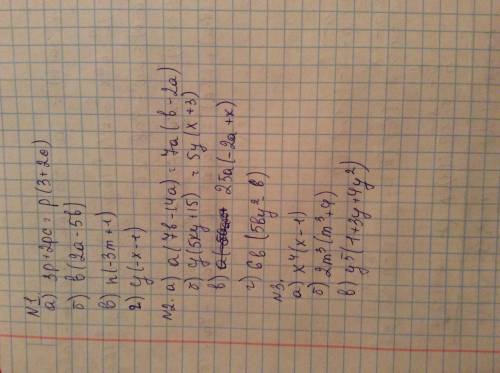 №1.
а) 3p+2pc = p(3+2c)
б) в(2a-5в)
в) n(-3m+1)
г) y(-x-1)
№2. а) a(7в-14a) = 7a(в-2a)
б) y(5xy+15) = 5y(x+3)
в) 25a(-2a+x)
г) 6в(5вy²-в)
№3.
а) x⁴(x-1)
б) 2m³(m³+9)
в) y⁵(1+3y+4y²)